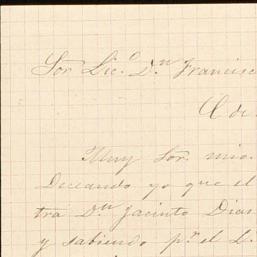 Sor Lic.º D.n Francisco
C. de
Muy Sor. mio.
Deceando yo que el
tra D.n Jacinto Dias
y sabiendo p.r el L.